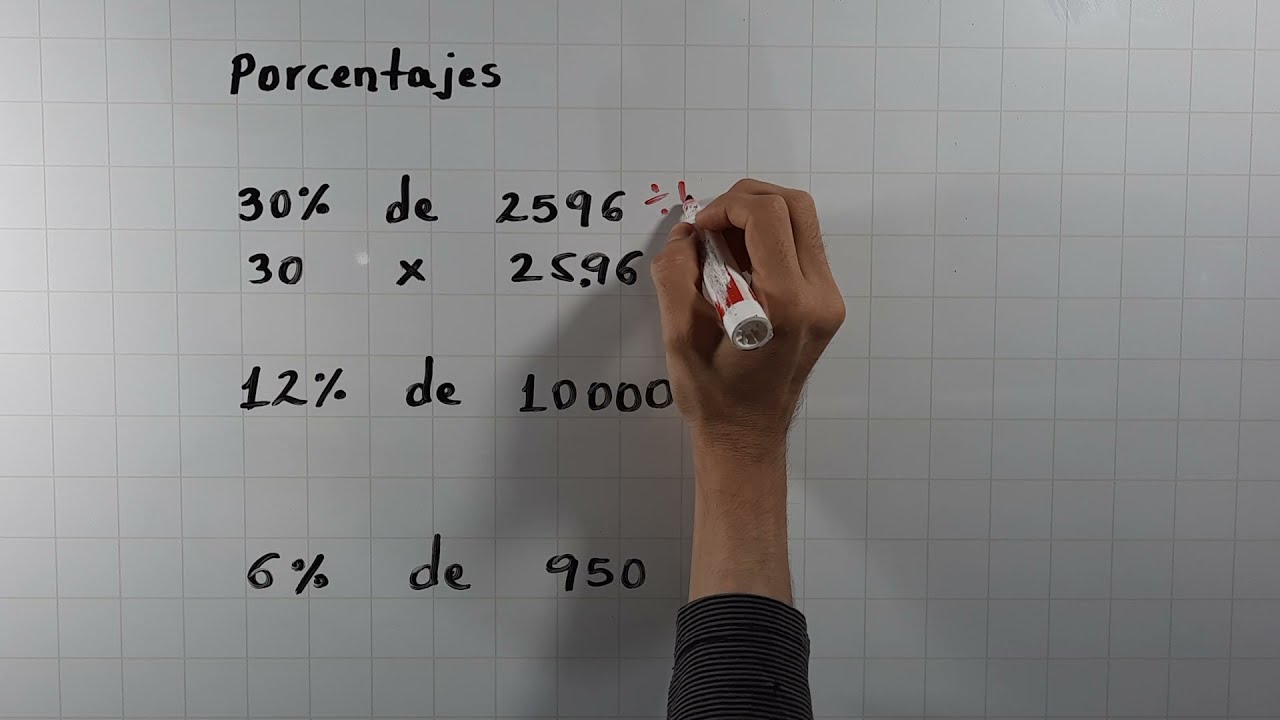 Porcentajes
30% de 2596 ÷ 1
30 x 25.96
12% de 10000
6% de 950